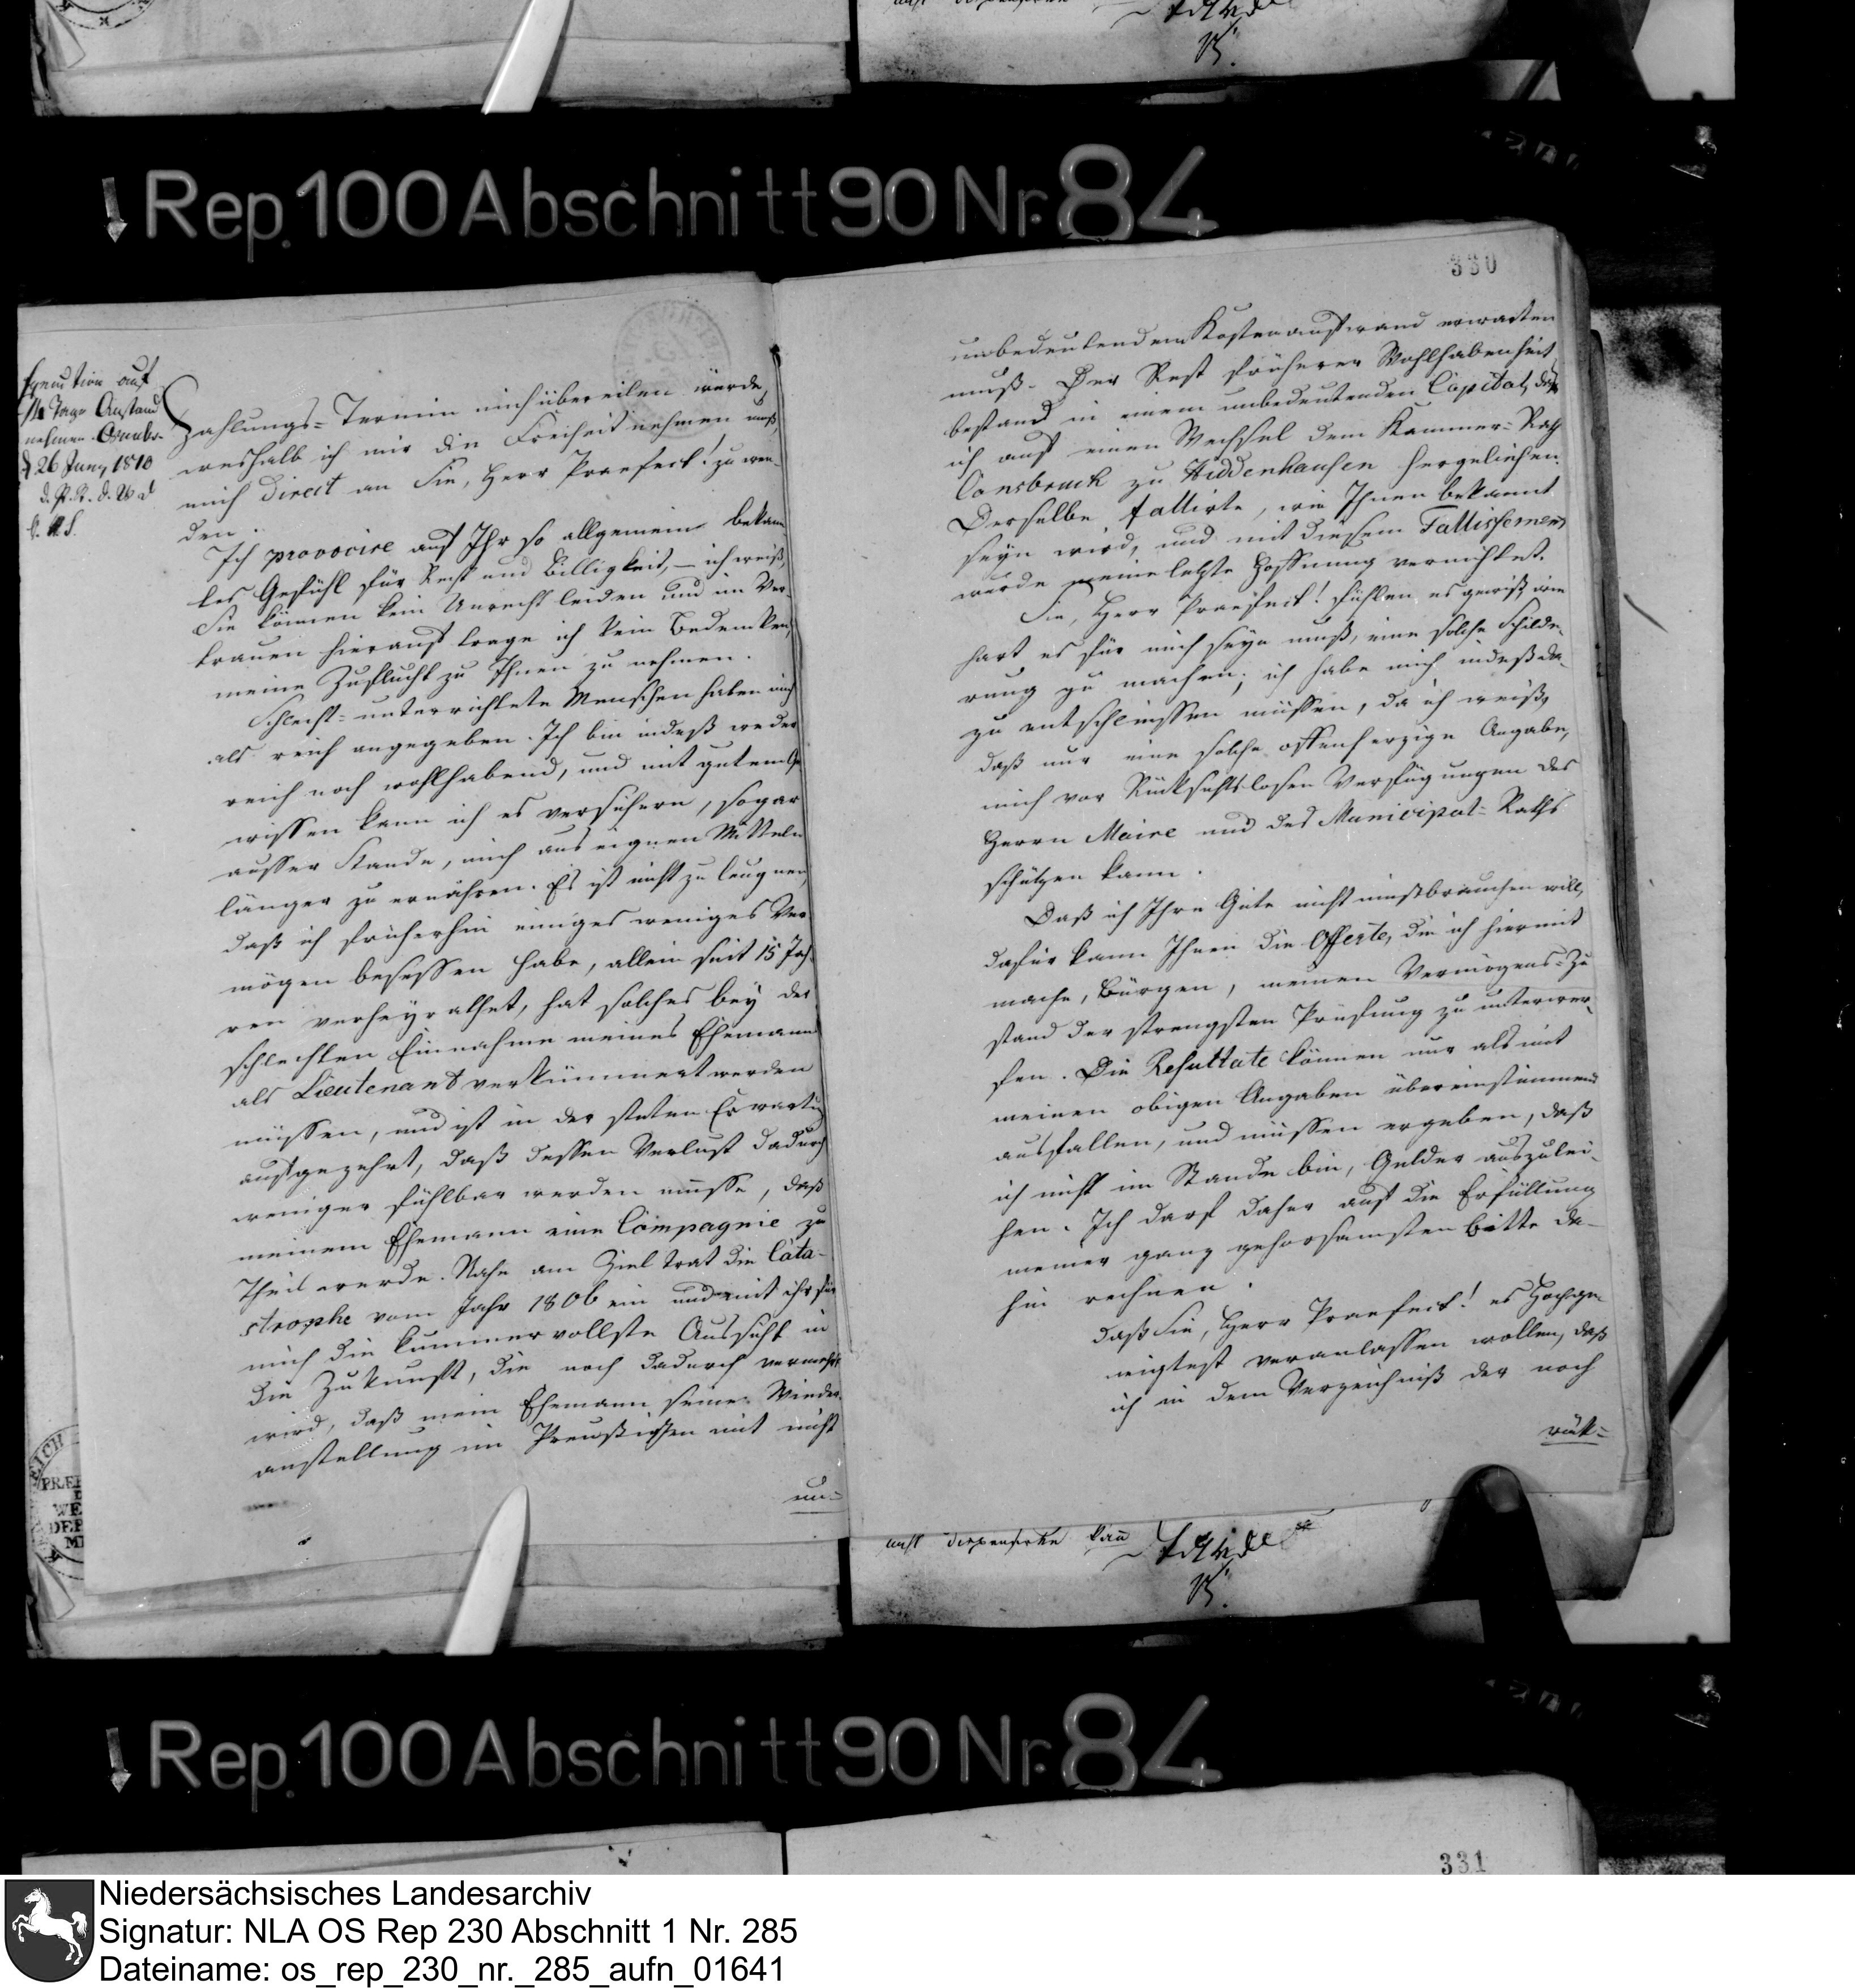 nicht dispensirten kann
Rep. 100 Abschnitt 90 Nr. 84
330
Execution auf
Tage Anstand
nehmen. Osnabr.
d 26 Juny 1810
Zahlungs-Termin mich übereilen würde,
weshalb ich mir die Freiheit nehmen muß,
mich direct an Sie, Herr Praefect! zu wen-
den.
Ich provocire auf Ihr so allgemein bekann
tes Gefühl für Recht und Billigkeit, – ich weiß,
Sie können kein Unrecht leiden und im Ver-
trauen hierauf trage ich kein Bedenken,
meine Zuflucht zu Ihnen zu nehmen.
Schlecht-unterrichtete Menschen haben mich
als reich angegeben. Ich bin indeß weder
reich noch wohlhabend, und mit gutem Ge
wissen kann ich es versichern, sogar
ausser Stande, mich aus eignen Mitteln
länger zu ernähren. Es ist nicht zu leugnen,
daß ich früherhin einiges weniges Ver
mögen besessen habe, allein seit 15 Jah-
ren verheyrathet, hat solches bey der
schlechten Einnahme meines Ehemanns
als Lieutenant verkümmert werden
müssen, und ist in der steten Erwartung
aufgezehrt, daß dessen Verlust dadurch
weniger fühlbar werden müsse, daß
meinem Ehemann eine Compagnie zu
Theil werde. Nahe am Ziel trat die Cata-
strophe vom Jahr 1806 ein und mit ihr für
mich die kummervollste Aussicht in
die Zukunft, die noch dadurch vermehrt
wird, daß mein Ehemann seine Wieder-
anstellung im Preußischen mit nicht
un-
unbedeutendem Kostenaufwand erwarten
muß. Der Rest früherer Wohlhabenheit
bestand in einem unbedeutenden Capital, das
ich auf einen Wechsel dem Kammer-Rath
Consbruch zu Hiddenhausen hergeliehen.
Derselbe fallirte, wie Ihnen bekannt
seyn wird, und mit diesem Fallissement
wurde meine letzte Hoffnung vernichtet.
Sie, Herr Praefect! fühlen es gewiß wie
hart es für mich seyn muß, eine solche Schilde-
rung zu machen; ich habe mich indeß da-
zu entschliessen müssen, da ich weiß,
daß nur eine solche offenherzige Angabe,
mich vor Rücksichtslosen Verfügungen des
Herrn Maire und des Municipal-Raths
schützen kann.
Daß ich Ihre Güte nicht misbrauchen will,
dafür kann Ihnen die Offerte, die ich hiermit
mache, bürgen, meinen Vermögens-Zu
stand der strengsten Prüfung zu unterwer-
fen. Die Resultate können nur als mit
meinen obigen Angaben übereinstimmend
ausfallen, und müssen ergeben, daß
ich nicht im Stande bin, Gelder auszulei-
hen. Ich darf daher auf die Erfüllung
meiner ganz gehorsamsten Bitte da-
hin rechnen.
daß Sie, Herr Praefect! es Hochge-
neigtest veranlassen wollen, daß
ich in dem Verzeichniß der noch
rück-
nicht dispensirten kann
Rep. 100 Abschnitt 90 Nr. 84
331
Niedersächsisches Landesarchiv
Signatur: NLA OS Rep 230 Abschnitt 1 Nr. 285
Dateiname: os_rep_230_nr._285_aufn_01641